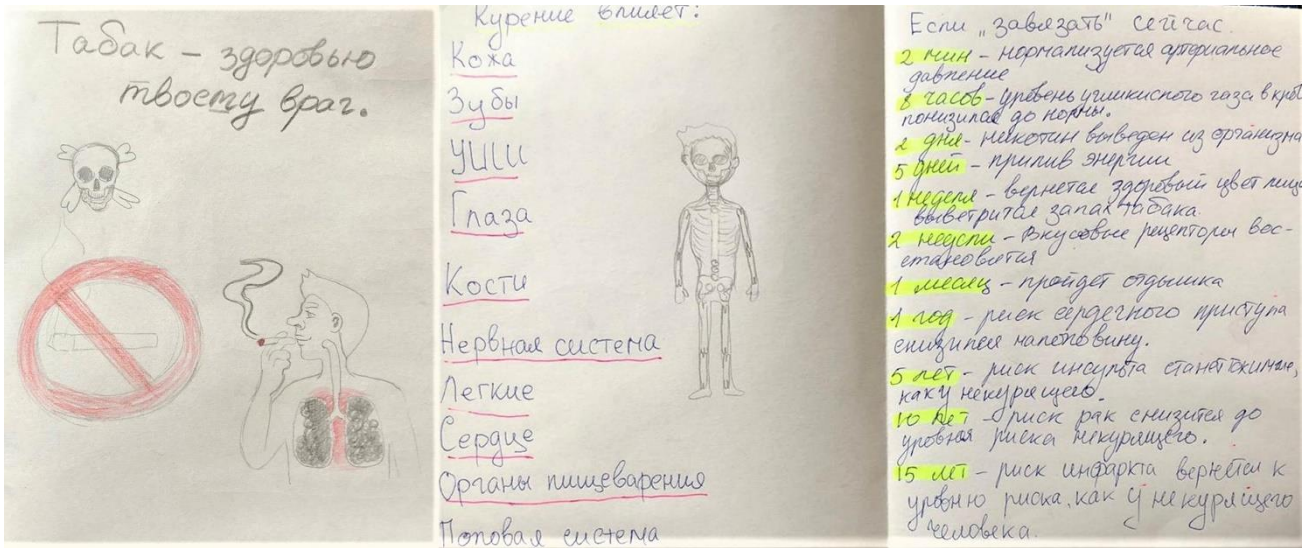 Табак – здоровью
твоему враг.
Курение влияет:
Кожа
Зубы
УШИ
Глаза
Кости
Нервная система
Легкие
Сердце
Органы пищеварения
Половая система
Если „завязать" сейчас.
2 мин – нормализуется артериальное
давление
8 часов – уровень углекислого газа в кров
понизился до нормы.
2 дня – никотин выведен из организма
5 дней – прилив энергии
1 неделя – вернется здоровый цвет лица
выветрится запах табака.
2 недели – Вкусовые рецепторы вос-
становятся
1 месяц – пройдет отдышка
1 год – риск сердечного приступа
снизился наполовину.
5 лет – риск инсульта станет таким же,
как у некурящего.
10 лет – риск рак снизится до
уровня риска некурящего.
15 лет – риск инфаркта вернется к
уровню риска, как у некурящего
человека.